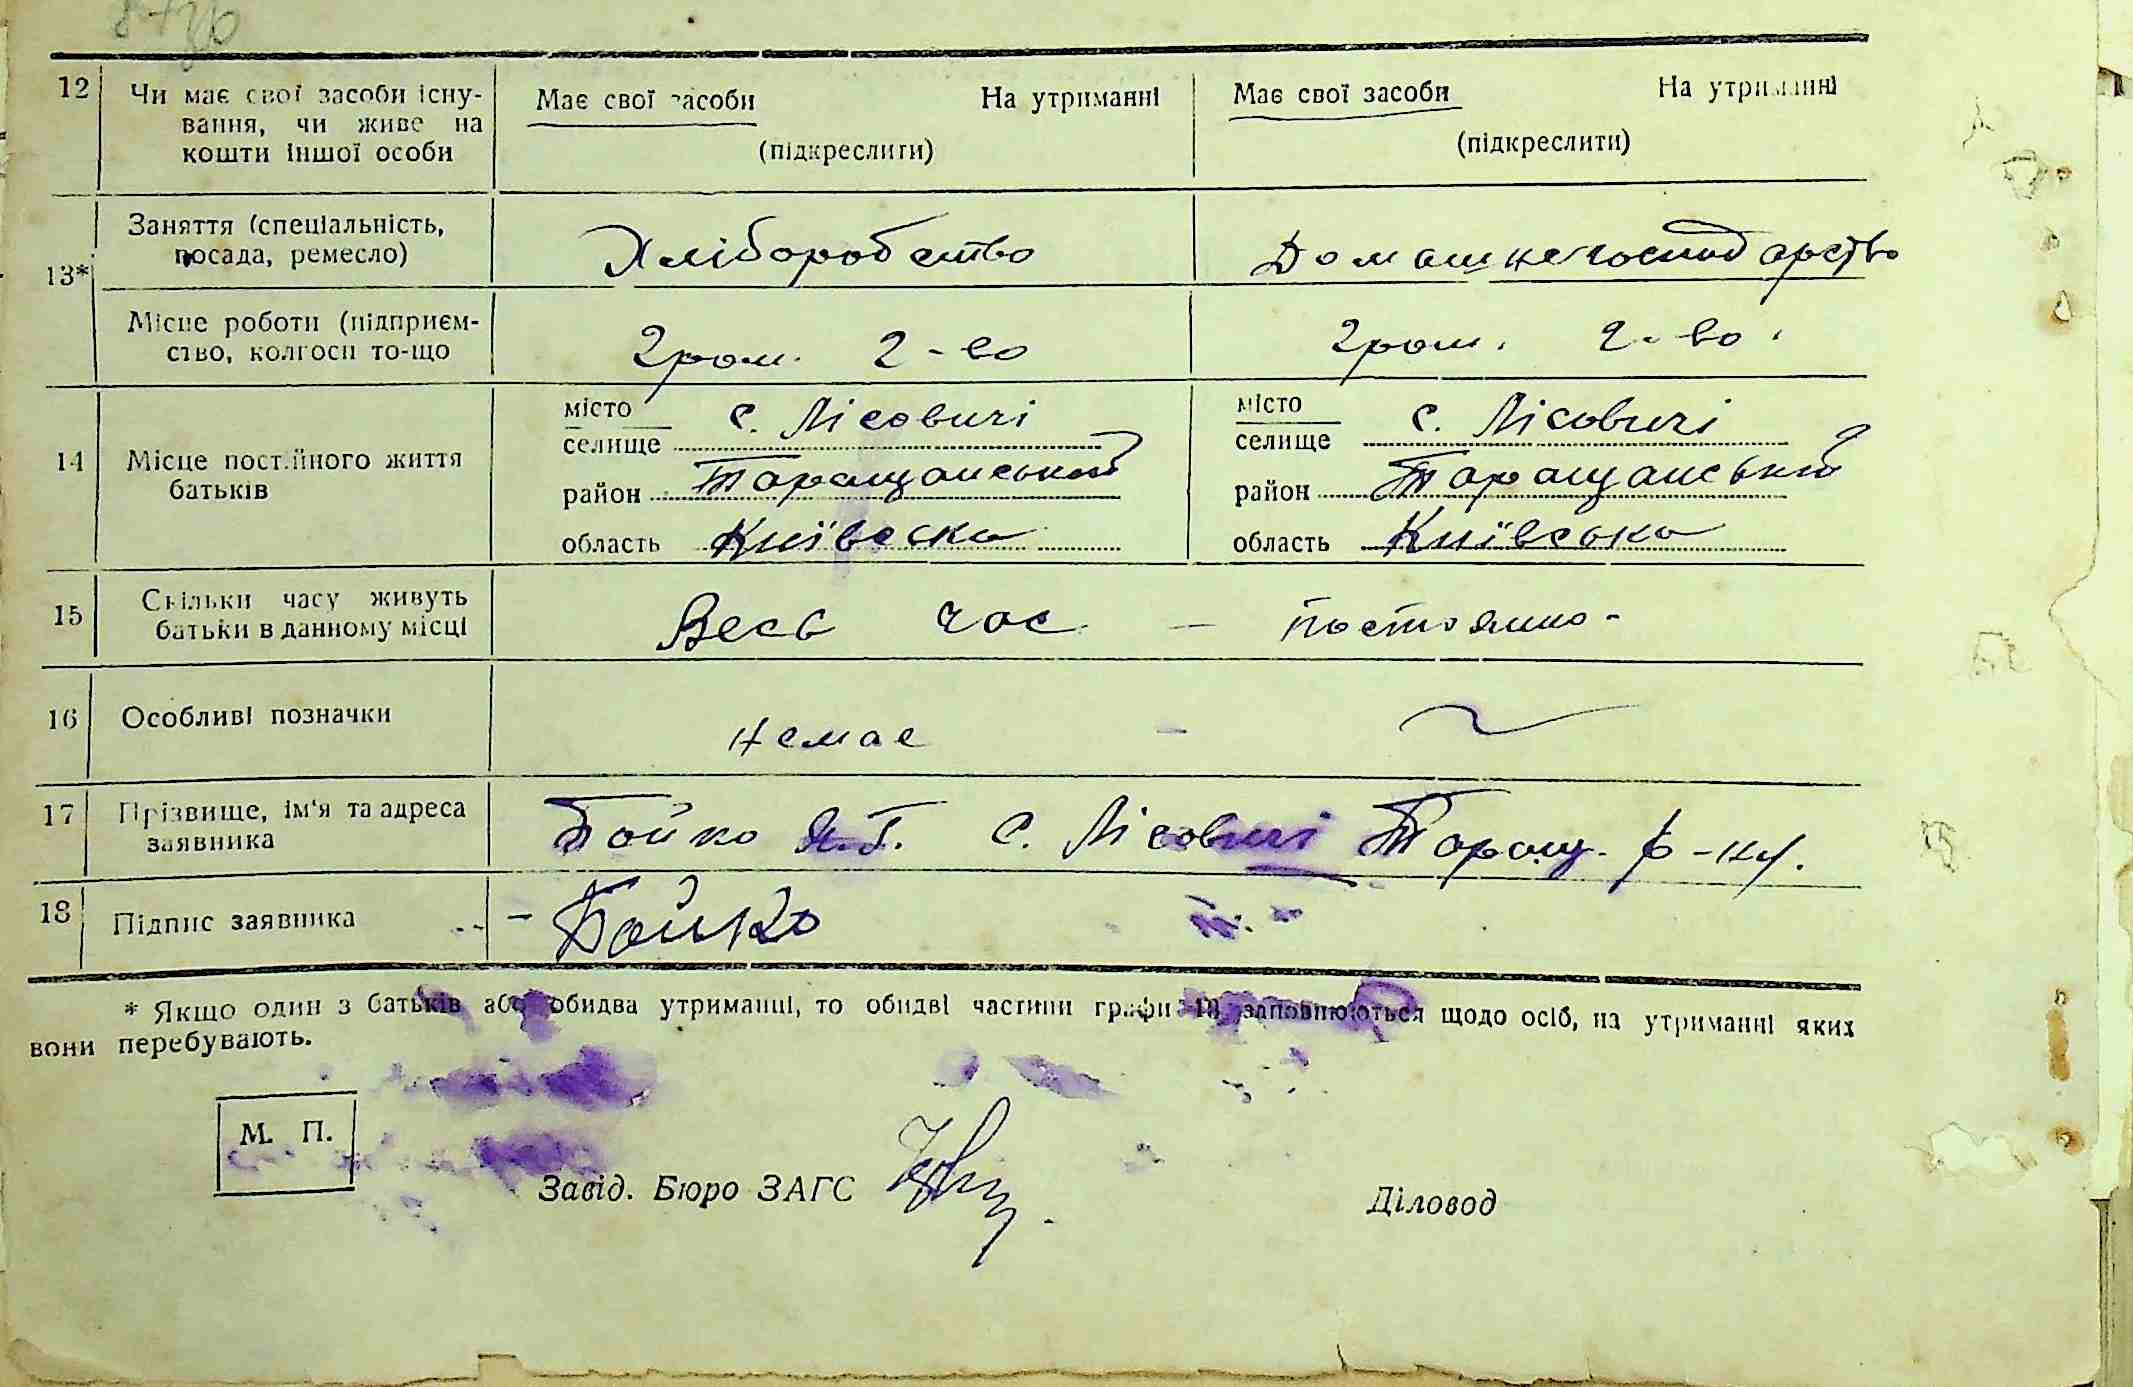 12 Чи має свої засоби існу- Має свої засоби На утриманні Має свої засоби На утриманні
вання, чи живе на
кошти іншої особи (підкреслити) (підкреслити)
Заняття (спеціальність,
посада, ремесло) Хліборобство Домашнє господарство
13*
Місце роботи (підприєм-
ство, колгосп то-що Гром. г-во Гром. г-во.
місто с. Лісовичі місто с. Лісовичі
селище селище
14 Місце постійного життя
батьків район Таращанський район Таращанський
область Київська область Київська
15 Скільки часу живуть
батьки в данному місці Весь час — постоянно -
16 Особливі позначки немає -
17 Прізвище, ім'я та адреса
заявника Бойко Я.Г. С. Лісовичі Таращ. р-ну.
18 Підпис заявника - Бойко
* Якщо один з батьків або обидва утриманці, то обидві частини графи 13 заповнюються щодо осіб, на утриманні яких
вони перебувають.
М. П.
Завід. Бюро ЗАГС Діловод